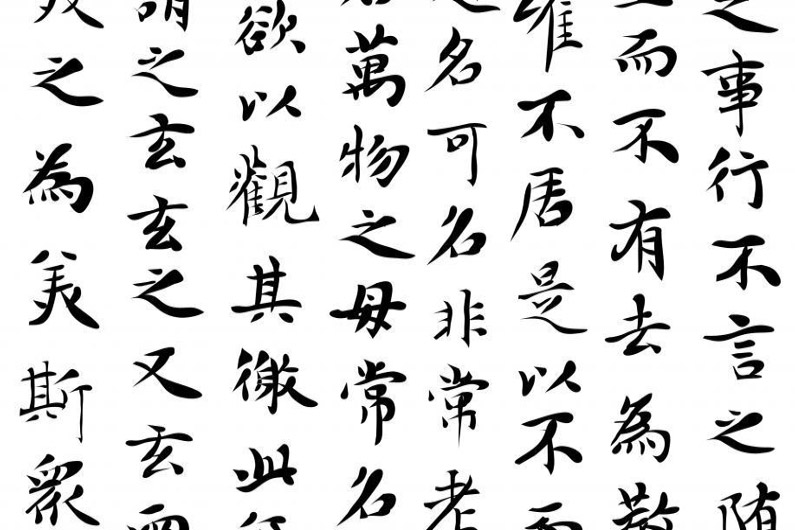 之事行不言之
而不有去為
不居是以不
名可名非常
萬物之母常名
欲以觀其徼此
謂之玄玄之又玄
之為美斯衆